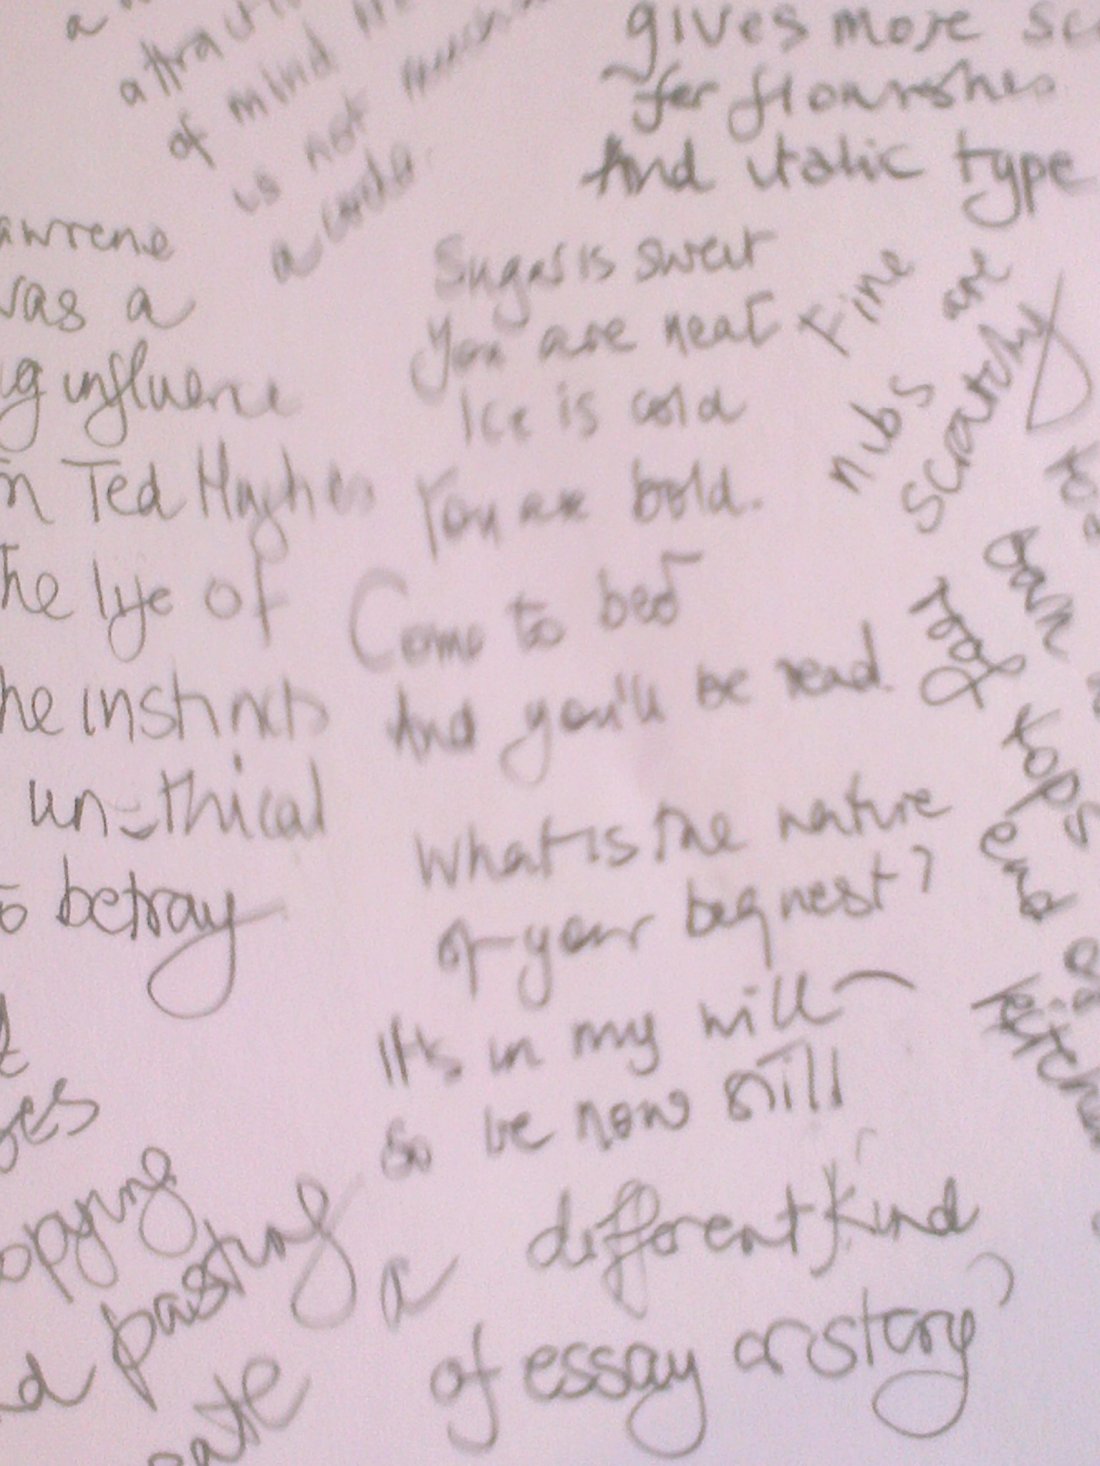 a
of mind
is not
a
gives more
for flourishes
And italic type
awrene
was a
g influence
n Ted Hughes
he life of
he instincts
unethical
to betray
es
opying
d pasting
eate
Sugar is sweet
You are neat
Ice is cold
You are bold.
Come to bed
And you'll be read.
What is the nature
of your beqnest?
It's in my will
So be now still
a different kind
of essay or story
Fine
nibs are
scratchy
roof tops
end